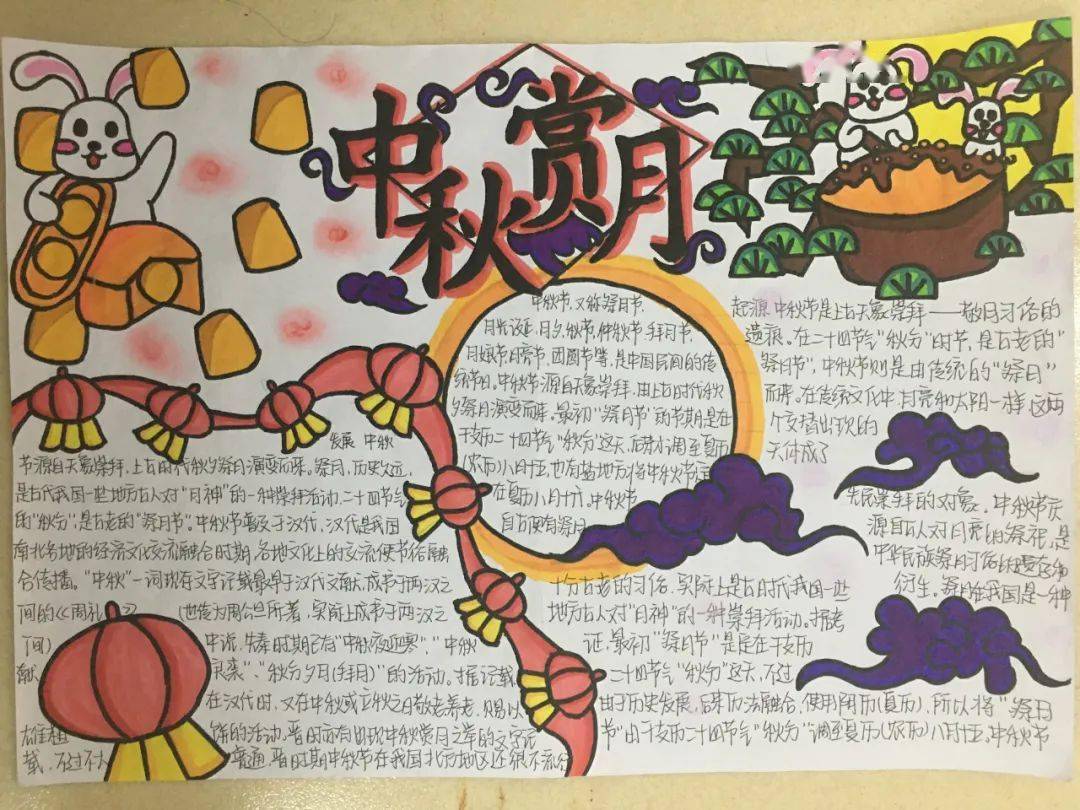 中秋赏月
中秋节，又称祭月节、
月光诞、月夕、秋节、仲秋节、拜月节、
月娘节、月亮节、团圆节等，是中国民间的传
统节日。中秋节源自天象崇拜，由上古时代秋
夕祭月演变而来。最初“祭月节”的节期是在
干支历二十四节气“秋分”这天，后来才调至夏历
(农历)八月十五，也有些地方将中秋节定
在夏历八月十六。中秋节
自古便有祭月、
发展 中秋
节源自天象崇拜，上古时代秋夕祭月演变而来。祭月，历史久远，
是古代我国一些地方古人对“月神”的一种崇拜活动，二十四节气
的“秋分”，是古老的“祭月节”。中秋节普及于汉代，汉代是我国
南北各地的经济文化交流融合时期，各地文化上的交流使节俗融
合传播。“中秋”一词现存文字记载最早于汉代文献，成书于两汉之
间的《周礼》
(也传为周公旦所著，实际上成书于两汉之
间)
中说，先秦时期已有“中秋夜迎寒”、“中秋
献
良裘”、“秋分夕月(拜月)”的活动。据记载，
在汉代时，又在中秋或立秋之日敬老养老，赐以
雄粗
饼的活动。晋时亦有出现中秋赏月之举的文字记
载，不过不太
普遍，晋时期中秋节在我国北方地区还很不流行
起源 中秋节是上古天象崇拜——敬月习俗的
遗痕。在二十四节气“秋分”时节，是古老的“
祭月节”，中秋节则是由传统的“祭月”
而来。在传统文化中，月亮和太阳一样，这两
个交替出现的
天体成了
先民崇拜的对象。中秋节庆
源自古人对月亮的祭祀，是
中华民族祭月习俗的遗存和
衍生。祭月在我国是一种
十分古老的习俗，实际上是古时代我国一些
地方古人对“月神”的一种崇拜活动。据考
证，最初“祭月节”是定在干支历
二十四节气“秋分”这天，不过
由于历史发展，后来历法融合，使用阴历(夏历)，所以将“祭月
节”由干支历二十四节气“秋分”调至夏历(农历)八月十五。中秋节